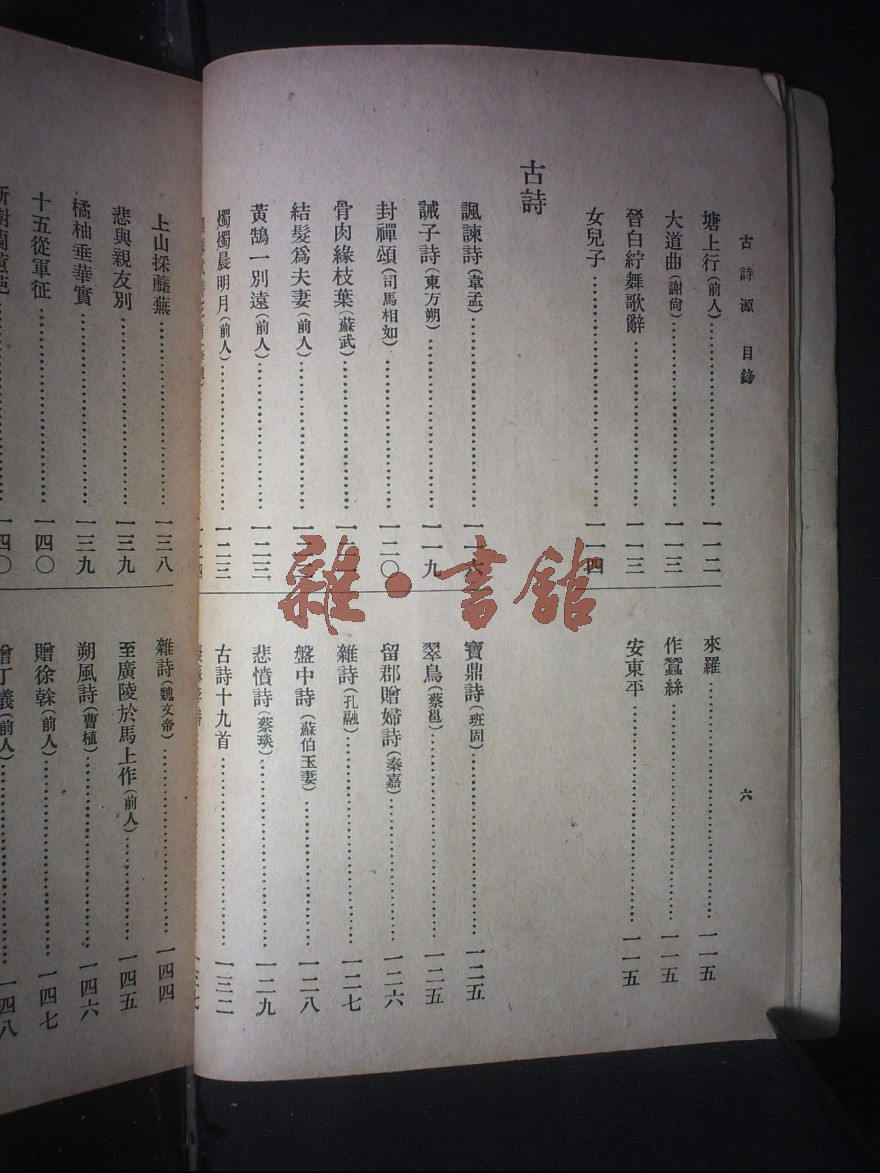 古詩源 目錄
六
塘上行(前人)……………112
大道曲(謝尙)……………一一三
晉白紵舞歌辭……………一一三
女兒子……………一一四
來羅……………一一五
作蠶絲……………一一五
安東平……………一一五
古詩
諷諫詩(韋孟)……………一一六
誡子詩(東方朔)……………一一九
封禪頌(司馬相如)……………一二〇
骨肉緣枝葉(蘇武)……………
結髮爲夫妻(前人)……………
黃鵠一別遠(前人)……………一二三
燭燭晨明月(前人)……………一二三
寶鼎詩(班固)……………一二五
翠鳥(蔡邕)……………一二五
留郡贈婦詩(秦嘉)……………一二六
雜詩(孔融)……………一二七
盤中詩(蘇伯玉妻)……………一二八
悲憤詩(蔡琰)……………一二九
古詩十九首……………一三二
上山採蘼蕪……………一三八
悲與親友別……………一三九
橘柚垂華實……………一三九
十五從軍征……………一四〇
一四〇
雜詩(魏文帝)……………一四四
至廣陵於馬上作(前人)……………一四五
朔風詩(曹植)……………一四六
贈徐幹(前人)……………一四七
贈丁儀(前人)……………一四八
雜·書館